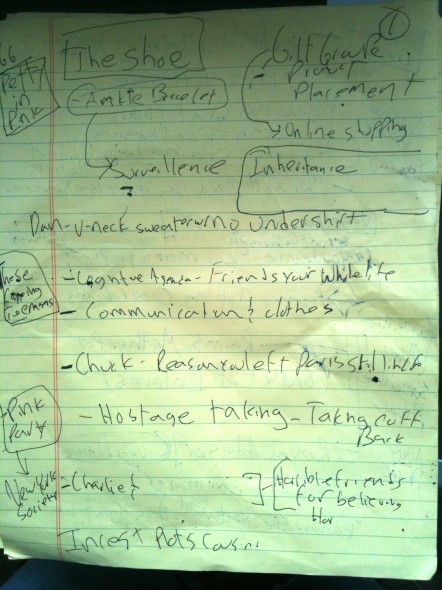 1
The Shoe
Gilt Groupe
Product
Placement
Online shopping
- Ankle Bracelet
Surveillence
?
Inheritance
Petty
in
Pink
Dan - V-neck sweater w/no undershirt
- Cognitive Agenda - Friends your whole life
These
- Communication & clothes
- Chuck - Reason you left Paris still in
- Hostage taking - Taking cuff
Back
Pink
Party
New York
Society
- Charlie &
Horrible friends
for believing
Her
Incest Plots Cousins